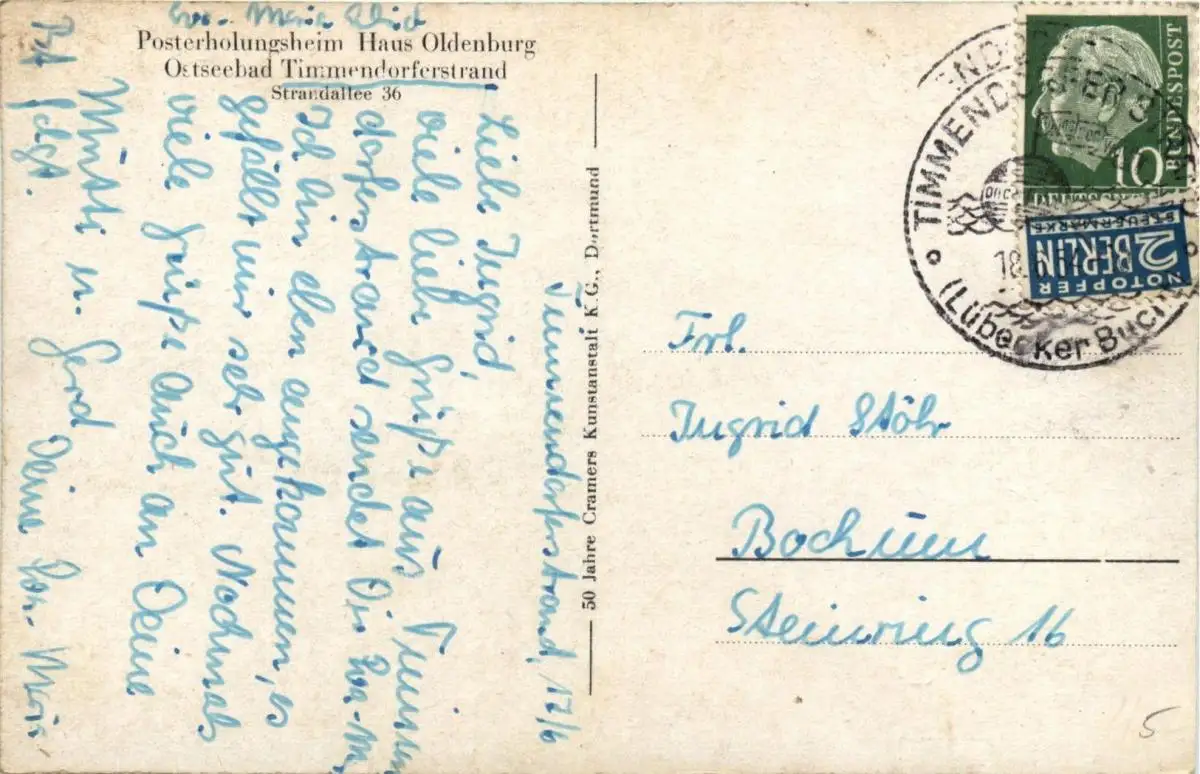 Eva-Maria
Posterholungsheim Haus Oldenburg
Ostseebad Timmendorferstrand
Strandallee 36
Timmendorferstrand, 17/6
Liebe Ingrid,
viele liebe Grüße aus Timmen
dorferstrand sendet Dir Eva-M.
Ich bin eben angekommen, es
gefällt mir sehr gut. Nochmals
viele Grüße auch an Deine
Mutti u. Gerd Deine Eva-Maria
50 Jahre Cramers Kunstanstalt K.G., Dortmund
TIMMENDORFER
(Lübecker Bucht
18.6.54
BUNDESPOST
10
NOTOPFER
2 BERLIN
STEUERMARKE
Frl.
Ingrid Stöhr
Bochum
Steinring 16
5